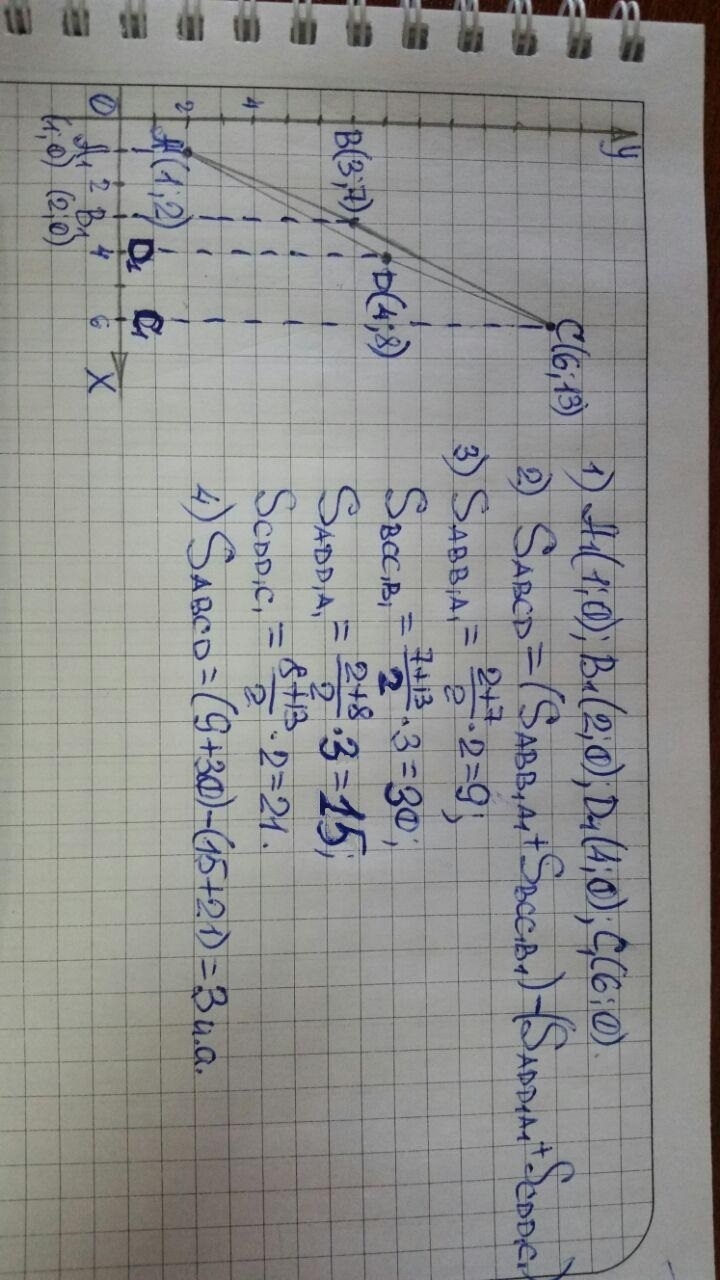 y
C(6;13)
D(4;8)
B(3;7)
4
2
A(1;2)
O
A₁
(1;0)
2
B₁
(2;0)
4
D₁
6
C₁
X
1) A₁(1;0); B₁(2;0); D₁(4;0); C₁(6;0).
2) SABCD = (SABB₁A₁ + SBCC₁B₁) - (SADD₁A₁ + SCDD₁C₁)
3) SABB₁A₁ = 2+7/2 · 2 = 9;
SBCC₁B₁ = 7+13/2 · 3 = 30;
SADD₁A₁ = 2+8/2 · 3 = 15;
SCDD₁C₁ = 8+13/2 · 2 = 21.
4) SABCD = (9+30) - (15+21) = 3 и.а.